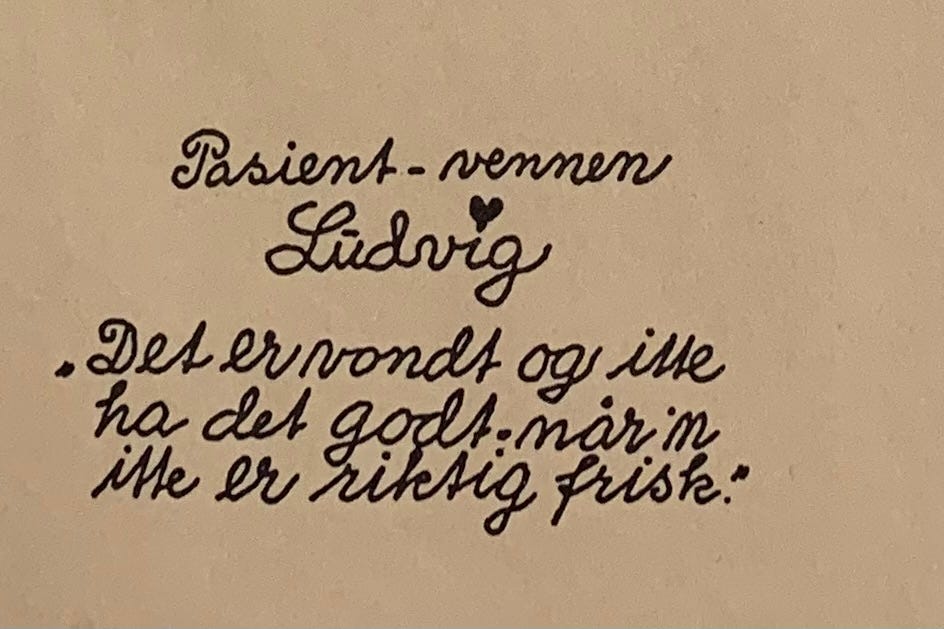 Pasient-vennen
Lūdvig
„Det er vondt og itte
ha det godt: når'n
itte er riktig frisk."